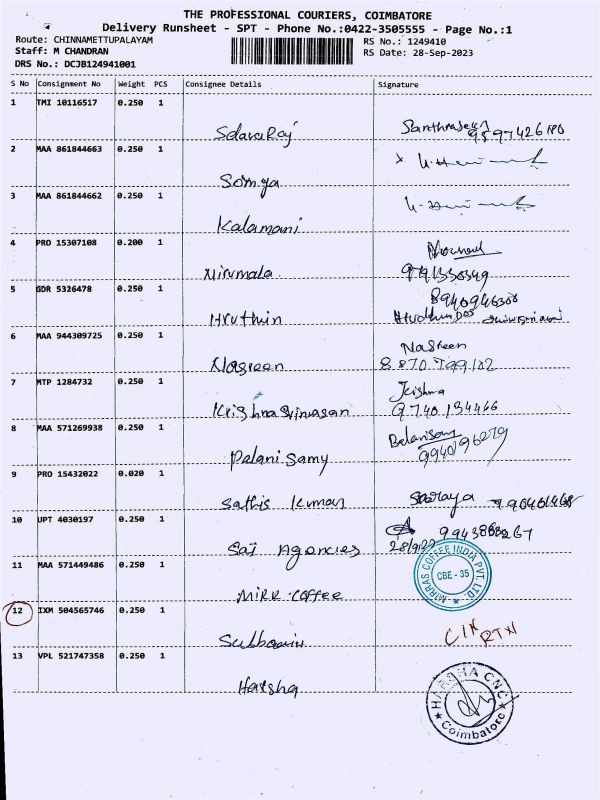 THE PROFESSIONAL COURIERS, COIMBATORE
Delivery Runsheet - SPT - Phone No.:0422-3505555 - Page No.:1
Route: CHINNAMETTUPALAYAM
RS No.: 1249410
Staff: M CHANDRAN
RS Date: 28-Sep-2023
DRS No.: DCJB124941001
S No Consignment No Weight PCS Consignee Details Signature
1 TMI 10116517 0.250 1
2 MAA 861844663 0.250 1
Somya
3 MAA 861844662 0.250 1
Kalamani
4 PRO 15307108 0.200 1
Nirumala
5 GDR 5326478 0.250 1
Hruthin
6 MAA 944309725 0.250 1
Nasreen
Nasreen
7 MTP 1284732 0.250 1
Krishna Srinivasan
Krishna
9740134466
8 MAA 571269938 0.250 1
Palani Samy
9940196279
9 PRO 15432022 0.020 1
Sathis Kumar
10 UPT 4030197 0.250 1
Sai Agencies
28/9/23
11 MAA 571449486 0.250 1
MIRR Coffee
MIRRAS COFFEE INDIA PVT. LTD.
CBE - 35
12 IXM 504565746 0.250 1
RTN
13 VPL 521747358 0.250 1
Harsha
HARSHA CNC
Coimbatore